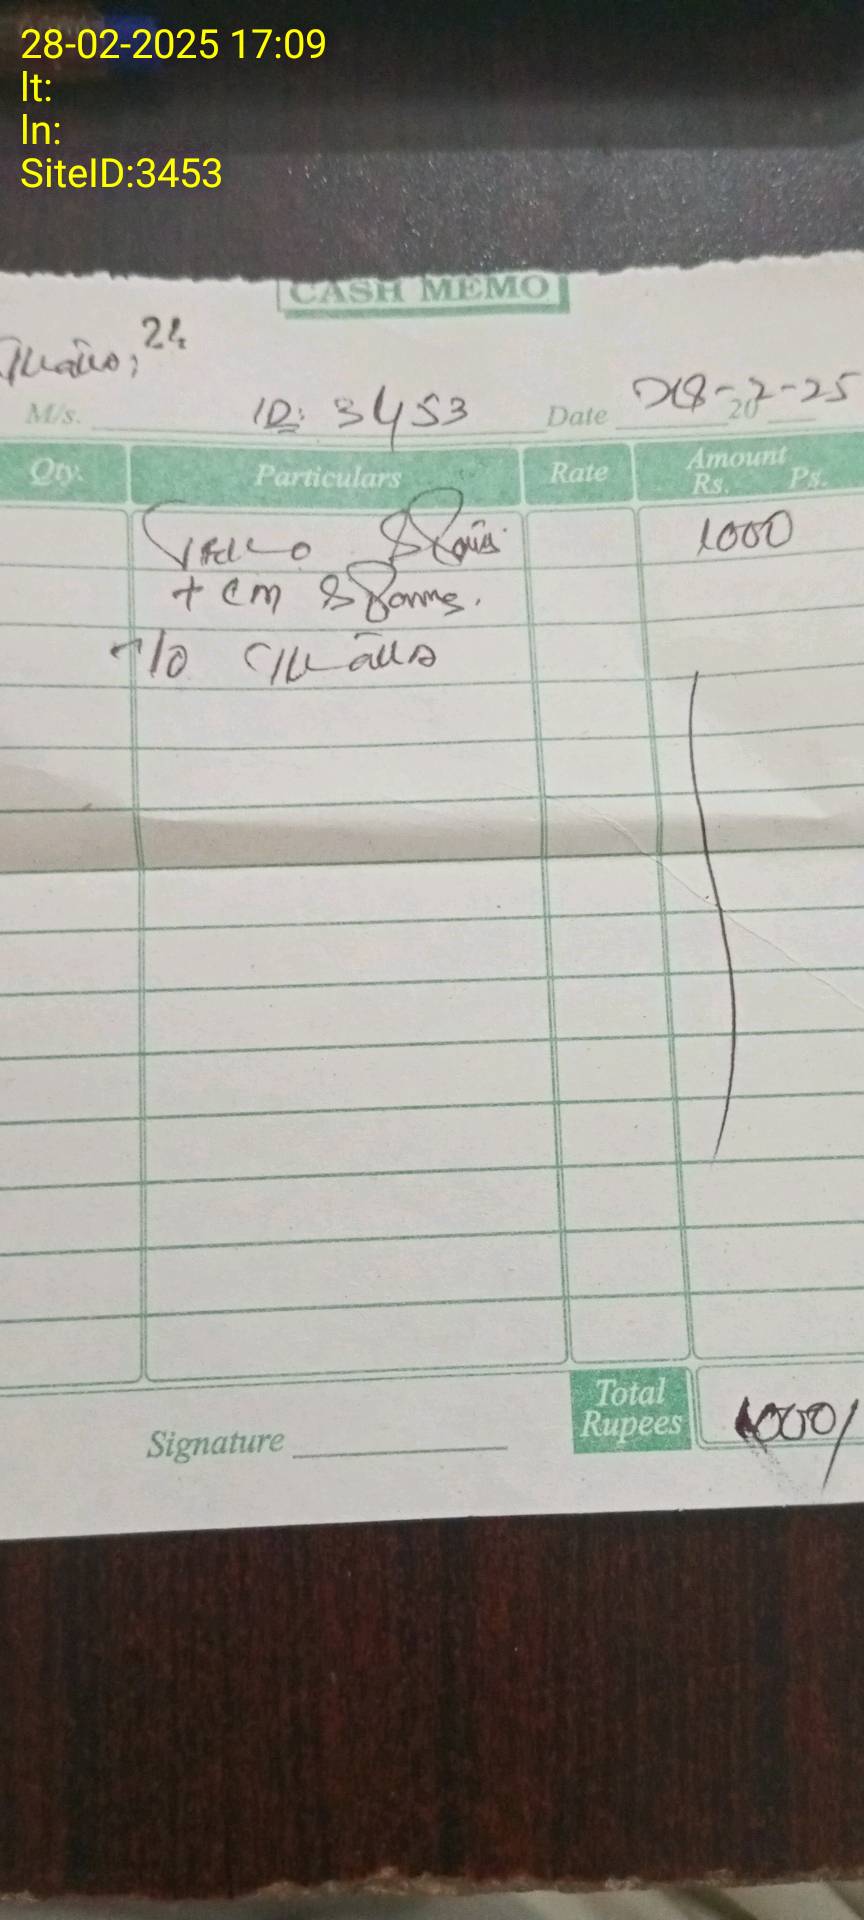 28-02-2025 17:09
lt:
ln:
SiteID:3453
CASH MEMO
24
M/s. ID: 3453 Date 28-2-25 20
Qty. Particulars Rate Amount Rs. Ps.
1000
+ cm
Total Rupees 1000/
Signature